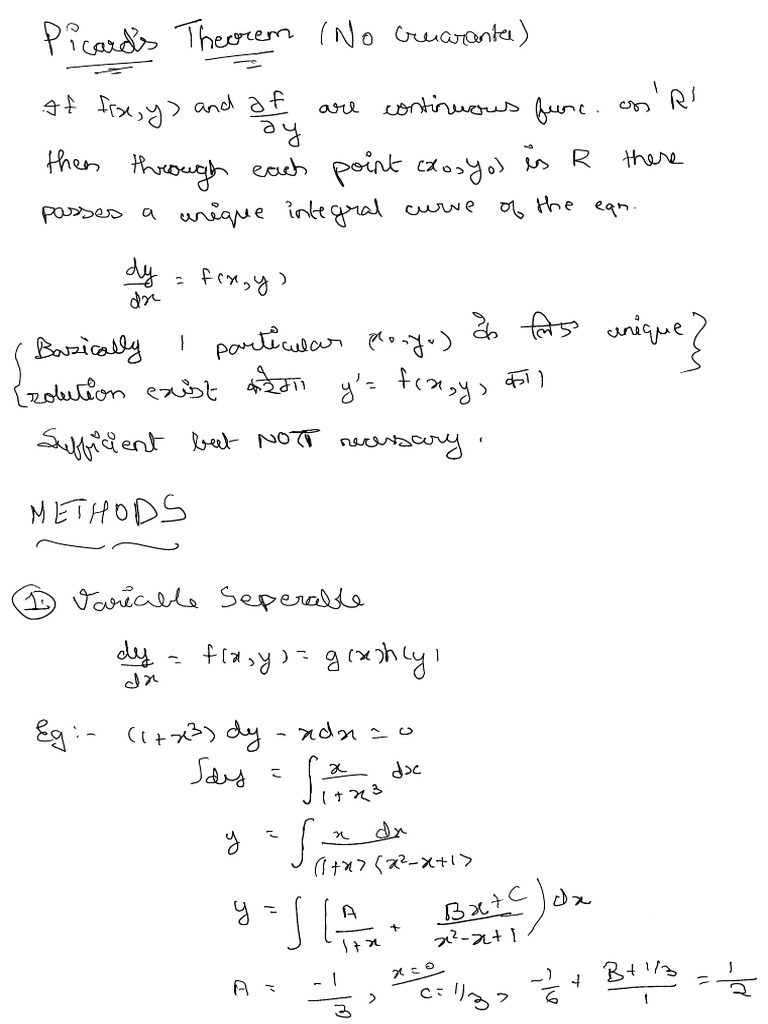 Picard's Theorem (No Guarantee)
If f(x,y) and ∂f/∂y are continuous func. on 'R'
then through each point (x₀,y₀) in R there
passes a unique integral curve of the eqn.
dy/dx = f(x,y)
{Basically 1 particular (x₀,y₀) के लिए unique
solution exist करेगा y' = f(x,y) का।}
Sufficient but NOT necessary.
METHODS
① Variable Seperable
dy/dx = f(x,y) = g(x)h(y)
Eg:- (1+x³) dy - xdx = 0
∫dy = ∫ x/(1+x³) dx
y = ∫ x dx/((1+x)(x²-x+1))
y = ∫ (A/(1+x) + (Bx+C)/(x²-x+1)) dx
A = -1/3, x=0 C=1/3, -1/6 + (B+1/3)/1 = 1/2